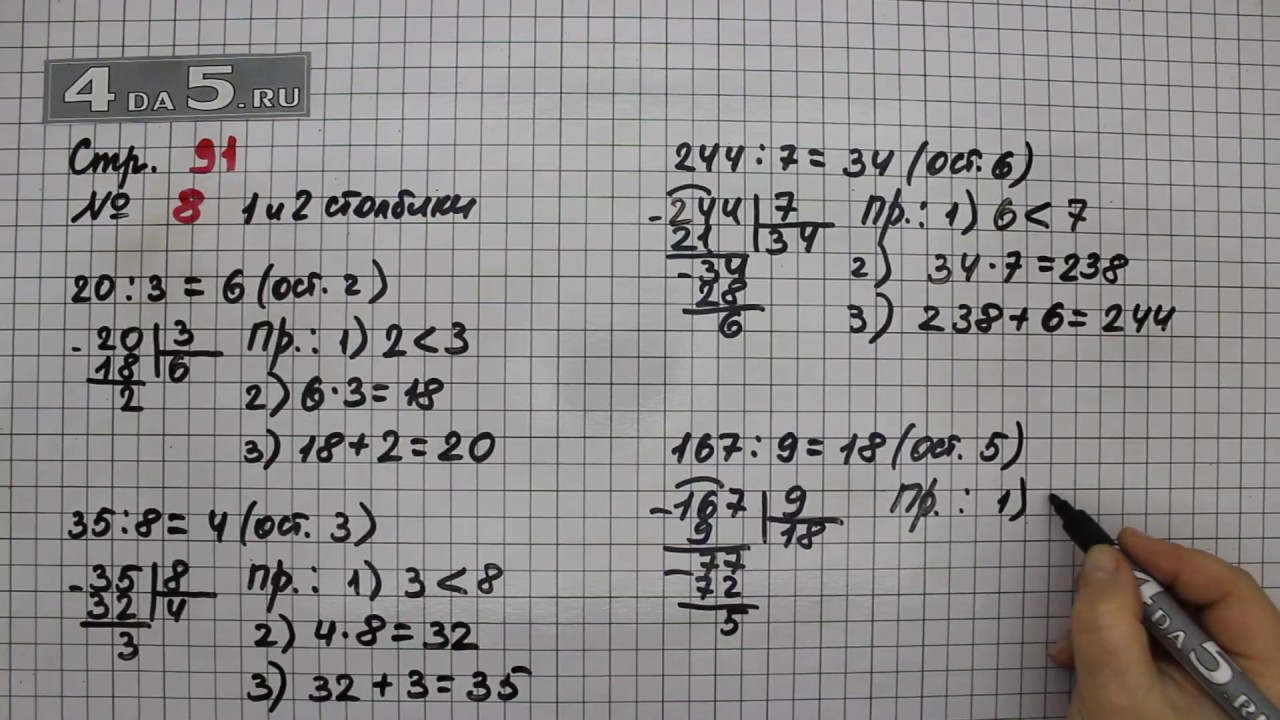 4 DA 5.RU
Стр. 91
№ 8 1 и 2 столбики
20 : 3 = 6 (ост. 2)
- 20 | 3
18 | 6
2
Пр.: 1) 2 < 3
2) 6 · 3 = 18
3) 18 + 2 = 20
35 : 8 = 4 (ост. 3)
- 35 | 8
32 | 4
3
Пр.: 1) 3 < 8
2) 4 · 8 = 32
3) 32 + 3 = 35
244 : 7 = 34 (ост. 6)
- 244 | 7
21 | 34
- 34
28
6
Пр.: 1) 6 < 7
2) 34 · 7 = 238
3) 238 + 6 = 244
167 : 9 = 18 (ост. 5)
- 167 | 9
9 | 18
- 77
72
5
Пр.: 1)
4 DA 5.RU